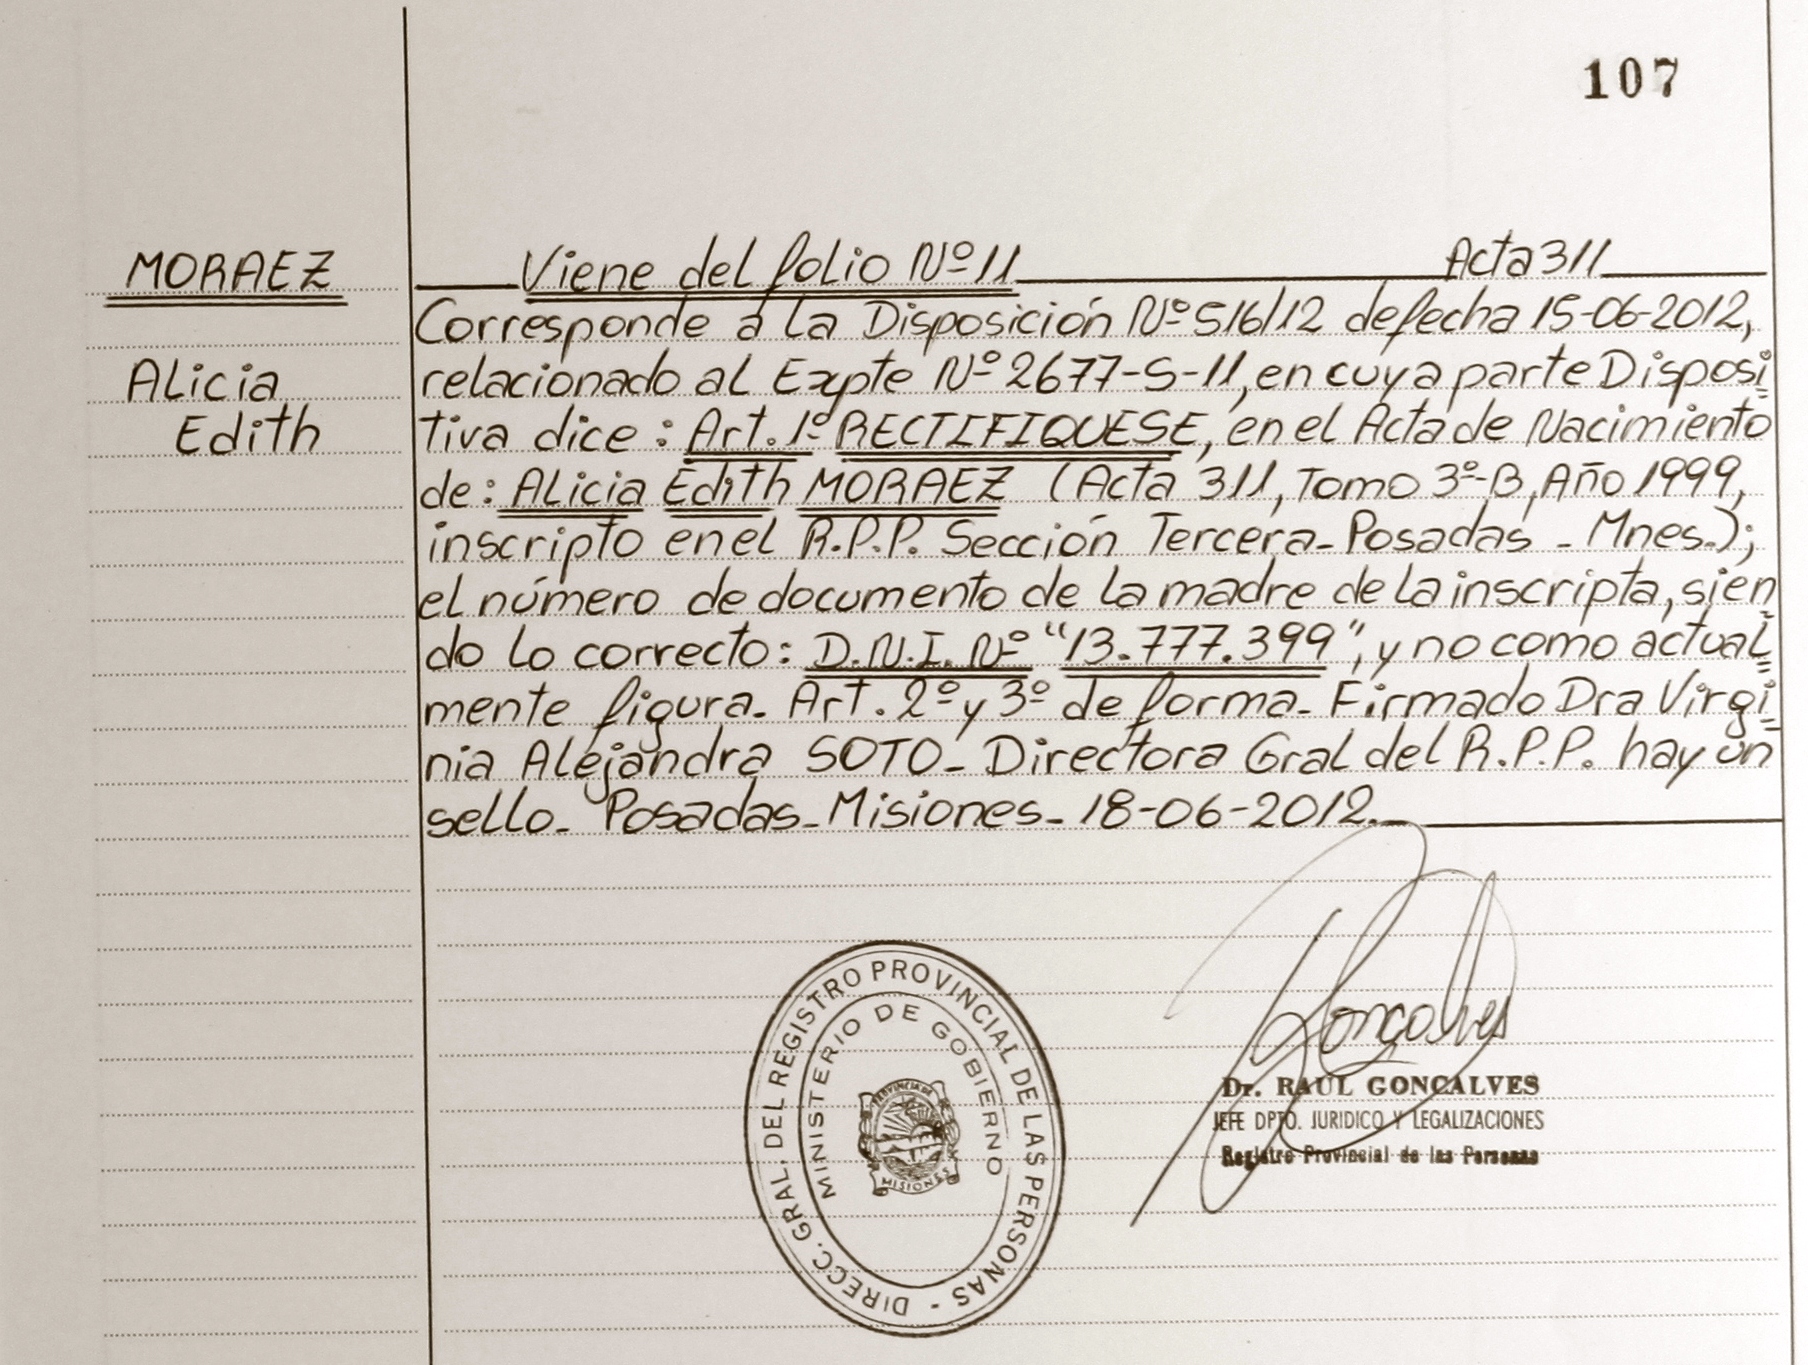 107
MORAEZ
Alicia
Edith
Viene del folio Nº 11 Acta 311
Corresponde a la Disposición Nº 516/12 de fecha 15-06-2012,
relacionado al Expte Nº 2677-S-11, en cuya parte Disposi
tiva dice: Art. 1º RECTIFIQUESE, en el Acta de Nacimiento
de: Alicia Edith MORAEZ (Acta 311, Tomo 3º-B, Año 1999,
inscripto en el R.P.P. Sección Tercera - Posadas - Mnes.);
el número de documento de la madre de la inscripta, sien
do lo correcto: D.N.I. Nº "13.777.399", y no como actual
mente figura. Art. 2º y 3º de forma. Firmado Dra Virgi
nia Alejandra SOTO - Directora Gral del R.P.P. hay un
sello. Posadas - Misiones - 18-06-2012.
DIRECC. GRAL. DEL REGISTRO PROVINCIAL DE LAS PERSONAS -
MINISTERIO DE GOBIERNO
PROVINCIA DE
MISIONES
Gonçalves
Dr. RAUL GONCALVES
JEFE DPTO. JURIDICO Y LEGALIZACIONES
Registro Provincial de las Personas